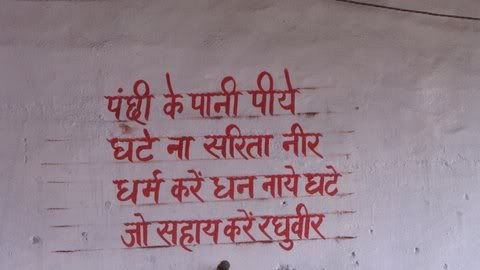 पंछी के पानी पीये
घटे ना सरिता नीर
धर्म करें धन नाये घटे
जो सहाय करें रघुवीर